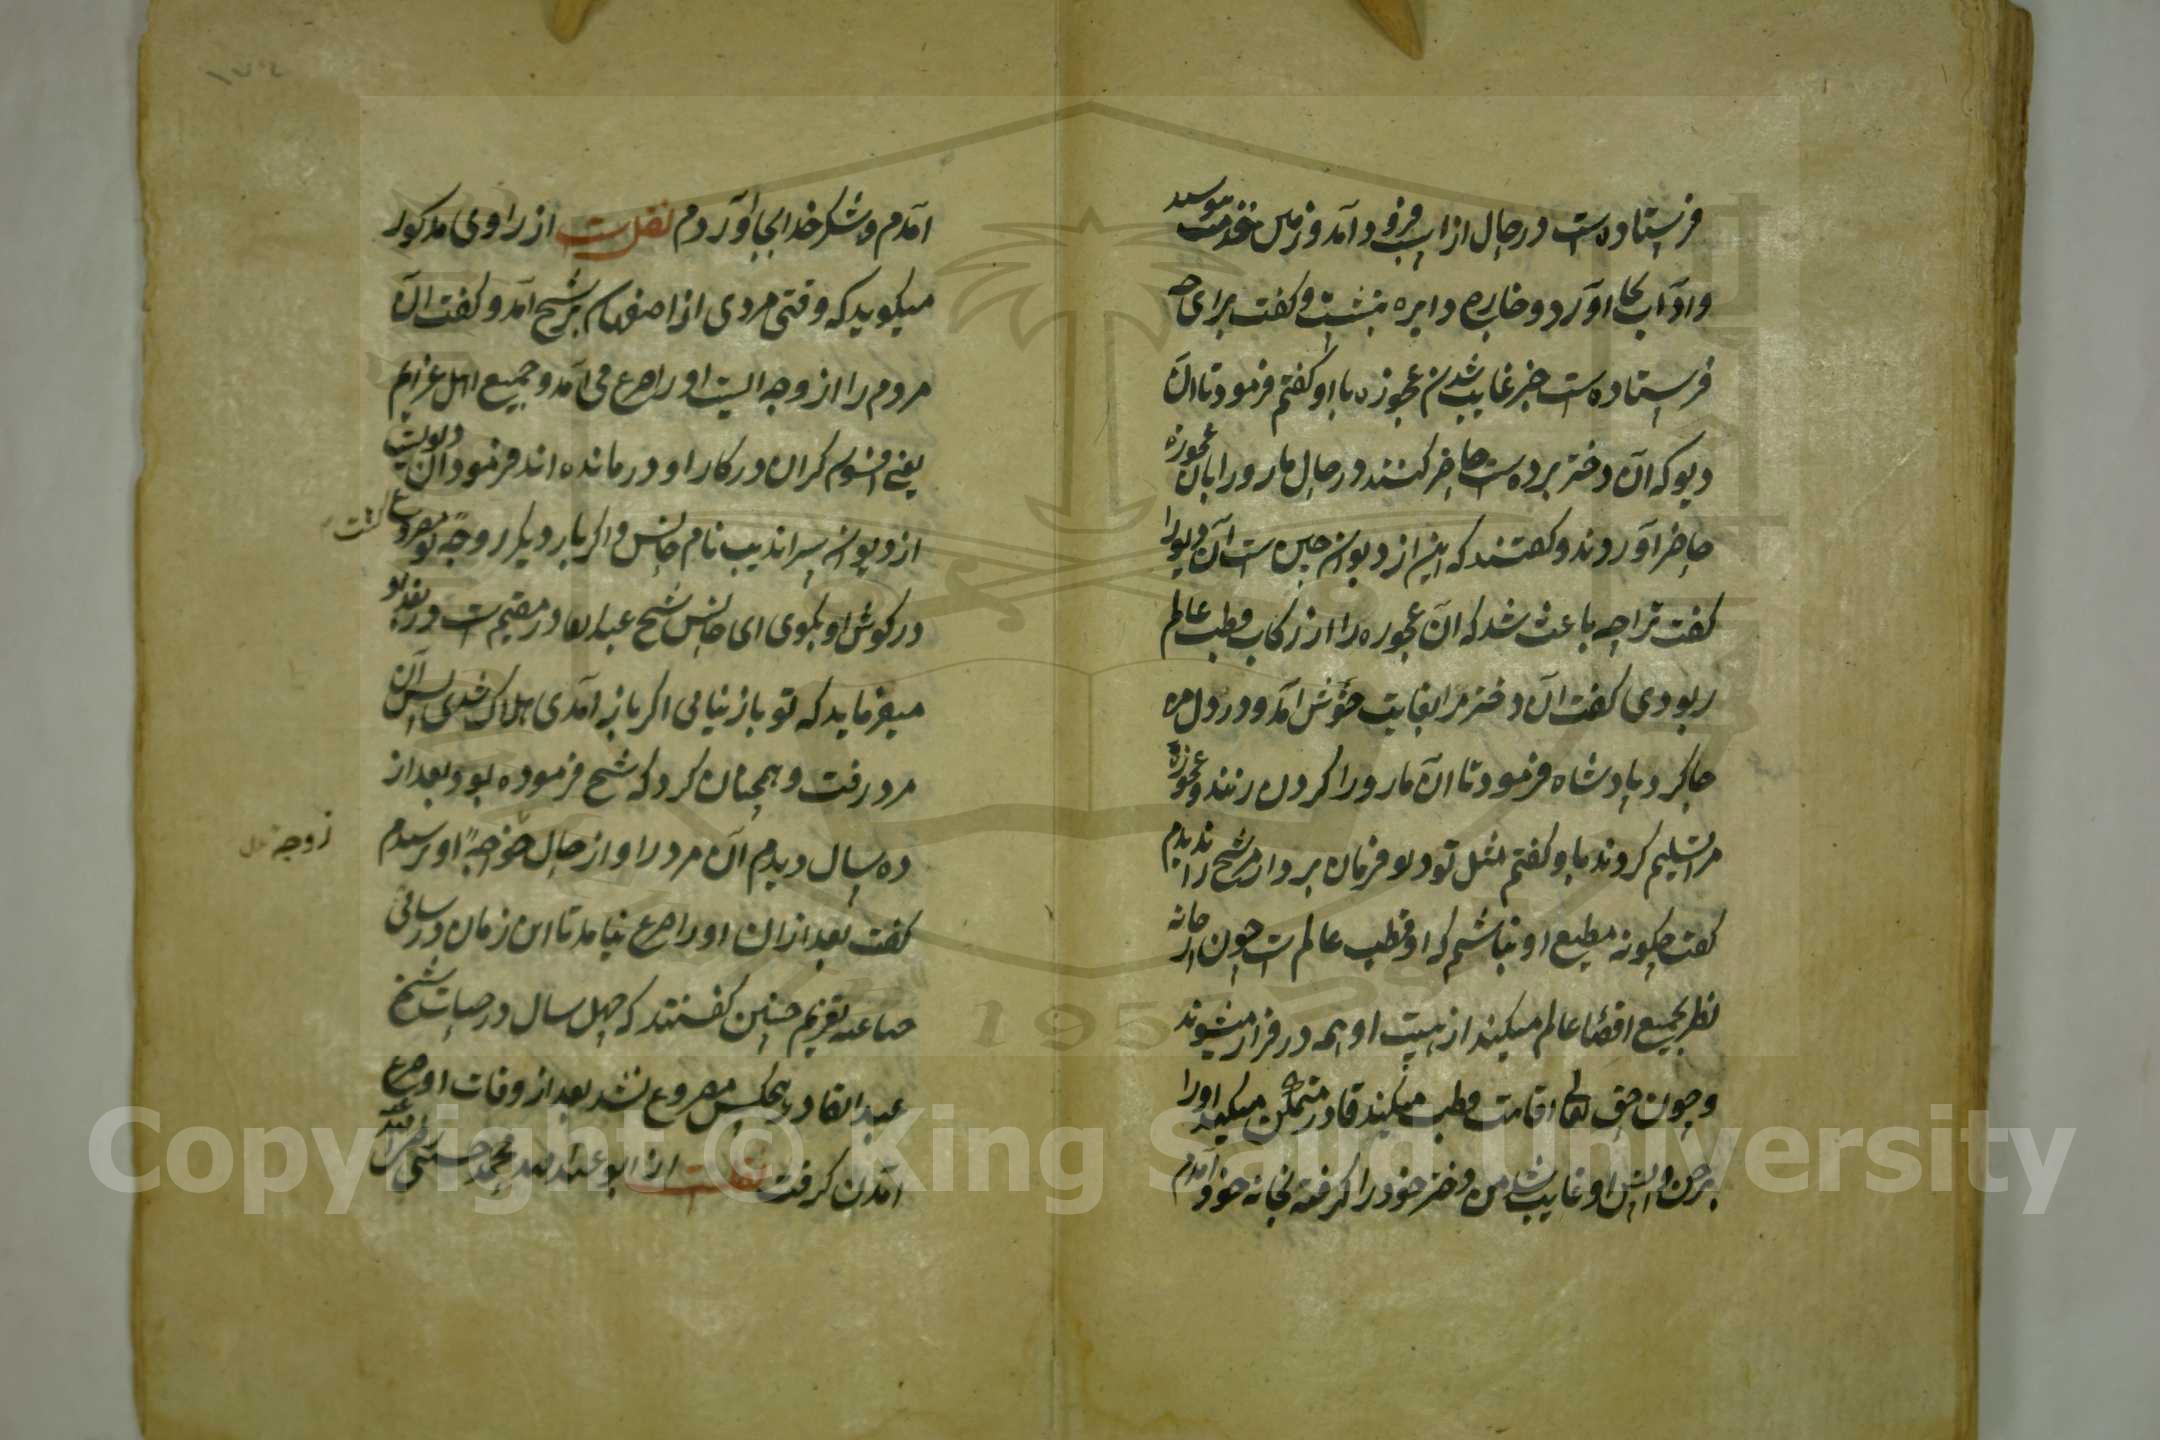 فرستاده است در حال از اسپ فرود آمد و زمین خدمت ببوسید
و آداب بجا آورد و خابره دایره بنشست و گفت برای چه
فرستاده است خبر غایب شدن عجوزه با او گفتم فرمود تا آن
دیو که آن دختر برده است حاضر کنند در حال مارو را با آن عجوزه
حاضر آوردند و گفتند که این از دیوان چین است آن دیو را
گفت ترا چه باعث شد که آن عجوزه را از رکاب قطب عالم
ربودی گفت آن دختر مرا بغایت خوش آمد و در دل من
جا کرد پادشاه فرمود تا آن مارو را گردن زنند و عجوزه
مرا تسلیم کردند با و گفتم مثل تو دیو فرمان بردار مر شیخ را ندیدم
گفت چگونه مطیع او نباشم که او قطب عالم است چون از خانه
نظر بجمیع اقصا عالم میکند از هیبت او همه در فرار میشوند
و چون حق تعالی اقامت قطب میکند قادر متمکن میکند او را
بر جن و انس او غایب شد من دختر خود را گرفته بخانه خود آمدم
آمدم و شکر خدا بجا آوردم نقلست از راوی مذکور
میگوید که وقتی مردی از اصفهان بر شیخ آمد و گفت آن
مردم را از وجه الیست او را صرع می آمد و جمیع اهل عزایم
یعنی افسون گران در کار او در مانده اند فرمود آن دیویست
از دیوان سراندیب نام خانس و اگر بار دیگر زوجه تو مصروع گشت
در گوش او بگوی ای خانس شیخ عبدالقادر مقیم است در بغداد
میفرماید که تو باز نیائی اگر باز آمدی هلاک شدی پس آن
مرد رفت و همچنان کرد که شیخ فرموده بود و بعد از
ده سال دیدم آن مرد را و از حال خواجه او پرسیدم
زوجه
گفت بعد از آن او را صرع نیامد تا این زمان و رسائی
صناعه تعزیم چنین گفتند که چهل سال در حیات شیخ
عبدالقادر هیچکس مصروع نشد بعد از وفات او صرع
آمدن گرفت نقلست از ابو عبدالله محمد حسینی
Copyright © King Saud University
1957